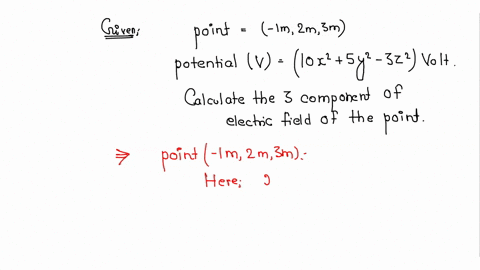 Given: point = (-1m, 2m, 3m)
potential (V) = (10x² + 5y² - 3z²) Volt.
Calculate the 3 component of
electric field of the point.
⇒ point (-1m, 2m, 3m):-
Here;